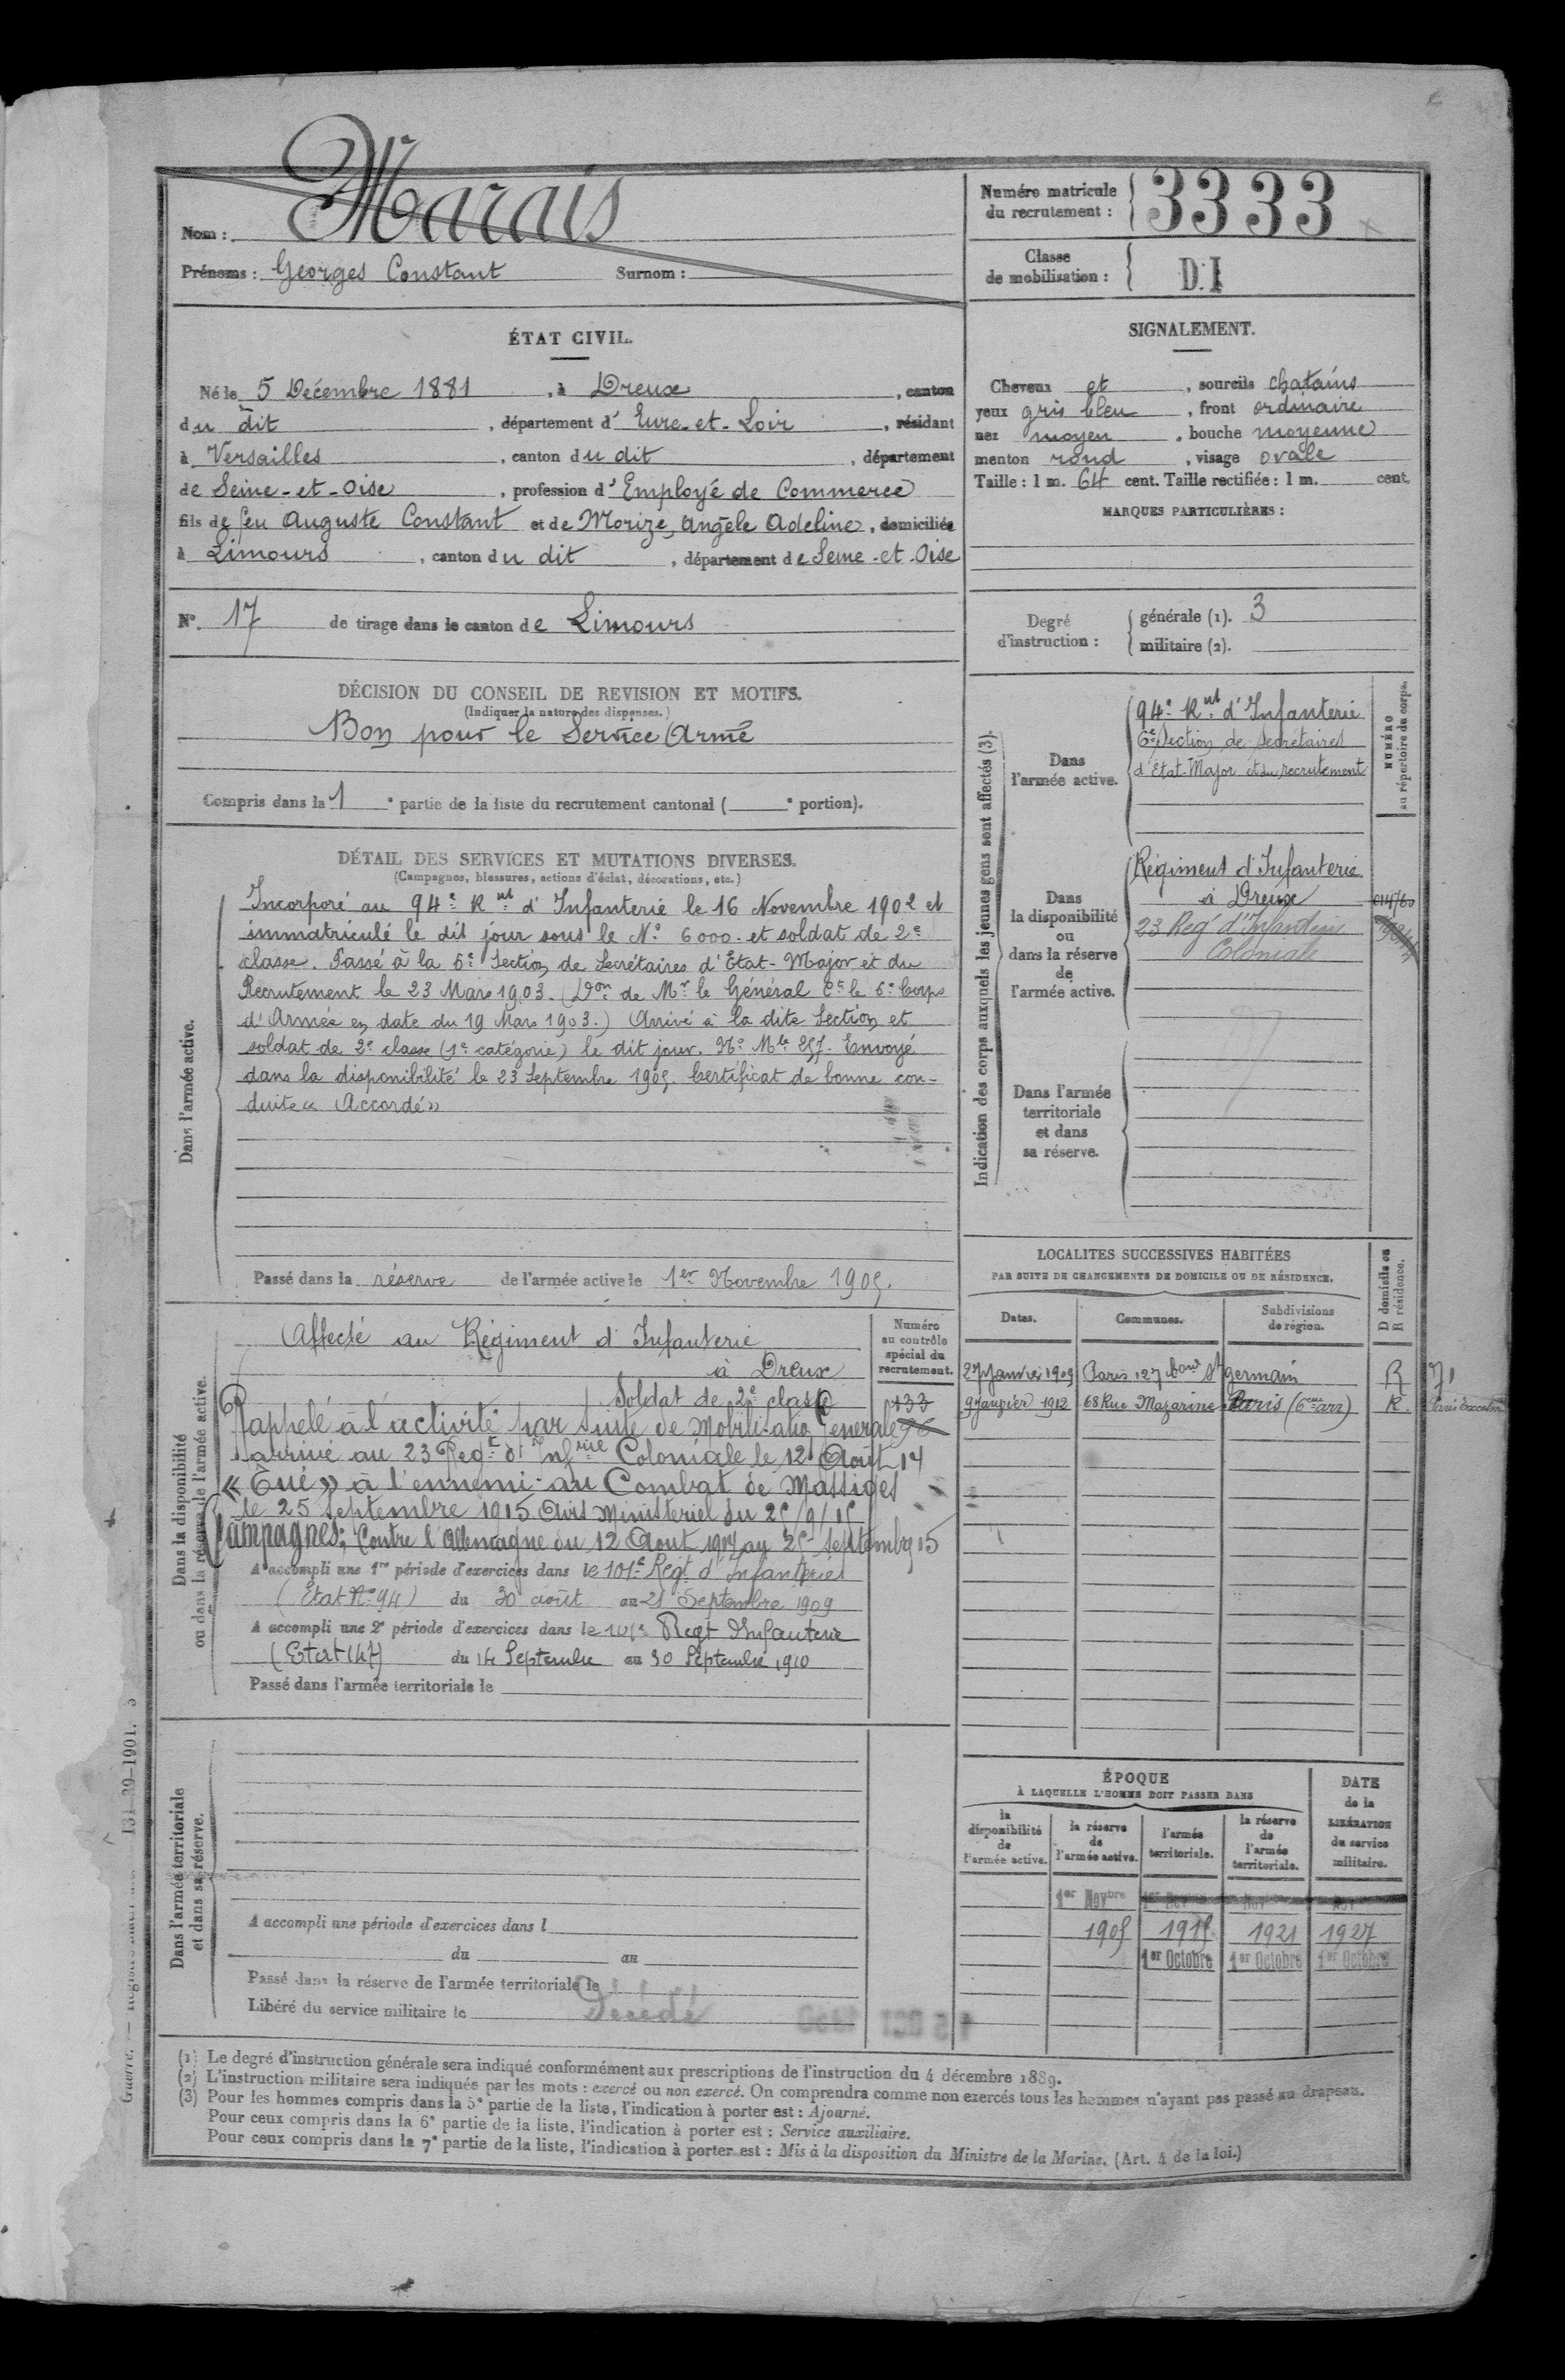 Nom : Marais
Prénoms : Georges Constant Surnom :
Numéro matricule
du recrutement : 3333
Classe
de mobilisation : D.I
ÉTAT CIVIL.
Né le 5 Décembre 1881, à Dreux, canton
du dit, département d'Eure-et-Loir, résidant
à Versailles, canton du dit, département
de Seine-et-Oise, profession d'Employé de Commerce
fils de feu Auguste Constant et de Morize, Angèle Adeline, domiciliée
à Limours, canton du dit, département de Seine-et-Oise
SIGNALEMENT.
Cheveux et, sourcils chatains
yeux gris bleu, front ordinaire
nez moyen, bouche moyenne
menton rond, visage ovale
Taille : 1 m. 64 cent. Taille rectifiée : 1 m. cent.
MARQUES PARTICULIÈRES :
N° 17 de tirage dans le canton de Limours
Degré
d'instruction :
générale (1). 3
militaire (2).
DÉCISION DU CONSEIL DE REVISION ET MOTIFS.
(Indiquer la nature des dispenses.)
Bon pour le Service Armé
Compris dans la 1e partie de la liste du recrutement cantonal ( e portion).
DÉTAIL DES SERVICES ET MUTATIONS DIVERSES.
(Campagnes, blessures, actions d'éclat, décorations, etc.)
Dans l'armée active.
Incorporé au 94e Rnt d'Infanterie le 16 Novembre 1902 et
immatriculé le dit jour sous le N° 6000. et soldat de 2e
classe. Passé à la 6e Section de Secrétaires d'Etat-Major et du
Recrutement le 23 Mars 1903. (Don de Mr le Général Ct le 6e Corps
d'Armée en date du 19 Mars 1903.) Arrivé à la dite Section et
soldat de 2e classe (1e catégorie) le dit jour. N° Mle 257. Envoyé
dans la disponibilité le 23 Septembre 1905. Certificat de bonne con-
duite « Accordé »
Passé dans la réserve de l'armée active le 1er Novembre 1905.
Indication des corps auxquels les jeunes gens sont affectés (3).
NUMÉRO
au répertoire du corps.
Dans
l'armée active.
94e Rnt d'Infanterie
6e Section de Secrétaires
d'Etat-Major et du recrutement
Dans
la disponibilité
ou
dans la réserve
de
l'armée active.
Régiment d'Infanterie
à Dreux
23 Regt d'Infanterie
Coloniale
Dans l'armée
territoriale
et dans
sa réserve.
Dans la disponibilité
ou dans la réserve de l'armée active.
Numéro
au contrôle
spécial du
recrutement.
Affecté au Régiment d'Infanterie
à Dreux
Soldat de 2e classe
Rappelé à l'activité par suite de Mobilisation Generale
arrivé au 23 Regt d'Infrie Coloniale le 12 Août 14
« Tué » à l'ennemi au Combat de Massiges
le 25 Septembre 1915 Avis Ministeriel du 25/9/15
Campagnes: Contre l'Allemagne du 12 Aout 1914 au 25 Septembre 15
A accompli une 1re période d'exercices dans le 101e Regt d'Infanterie
(Etat N° 94) du 30 août au 21 Septembre 1909
A accompli une 2e période d'exercices dans le 101e Regt Infanterie
du 14 Septembre au 30 Septembre 1910
Passé dans l'armée territoriale le
LOCALITES SUCCESSIVES HABITÉES
PAR SUITE DE CHANGEMENTS DE DOMICILE OU DE RÉSIDENCE.
D domicile ou
R résidence.
Dates. Communes. Subdivisions
de région.
27 Janvier 1909 Paris 127 Bould St germain R
9 Janvier 1912 68 Rue Mazarine Paris (6eme arr) R.
Dans l'armée territoriale
et dans sa réserve.
A accompli une période d'exercices dans l
du au
Passé dans la réserve de l'armée territoriale le
Libéré du service militaire le
Décédé
ÉPOQUE
À LAQUELLE L'HOMME DOIT PASSER DANS
DATE
de la
LIBÉRATION
du service
militaire.
la
disponibilité
de
l'armée active.
la réserve
de
l'armée active.
l'armée
territoriale.
la réserve
de
l'armée
territoriale.
1er Novbre
1905 1915 1921 1927
1er Octobre 1er Octobre 1er Octobre
(1) Le degré d'instruction générale sera indiqué conformément aux prescriptions de l'instruction du 4 décembre 1889.
(2) L'instruction militaire sera indiquée par les mots : exercé ou non exercé. On comprendra comme non exercés tous les hommes n'ayant pas passé au drapeau.
(3) Pour les hommes compris dans la 5e partie de la liste, l'indication à porter est : Ajourné.
Pour ceux compris dans la 6e partie de la liste, l'indication à porter est : Service auxiliaire.
Pour ceux compris dans la 7e partie de la liste, l'indication à porter est : Mis à la disposition du Ministre de la Marine. (Art. 4 de la loi.)